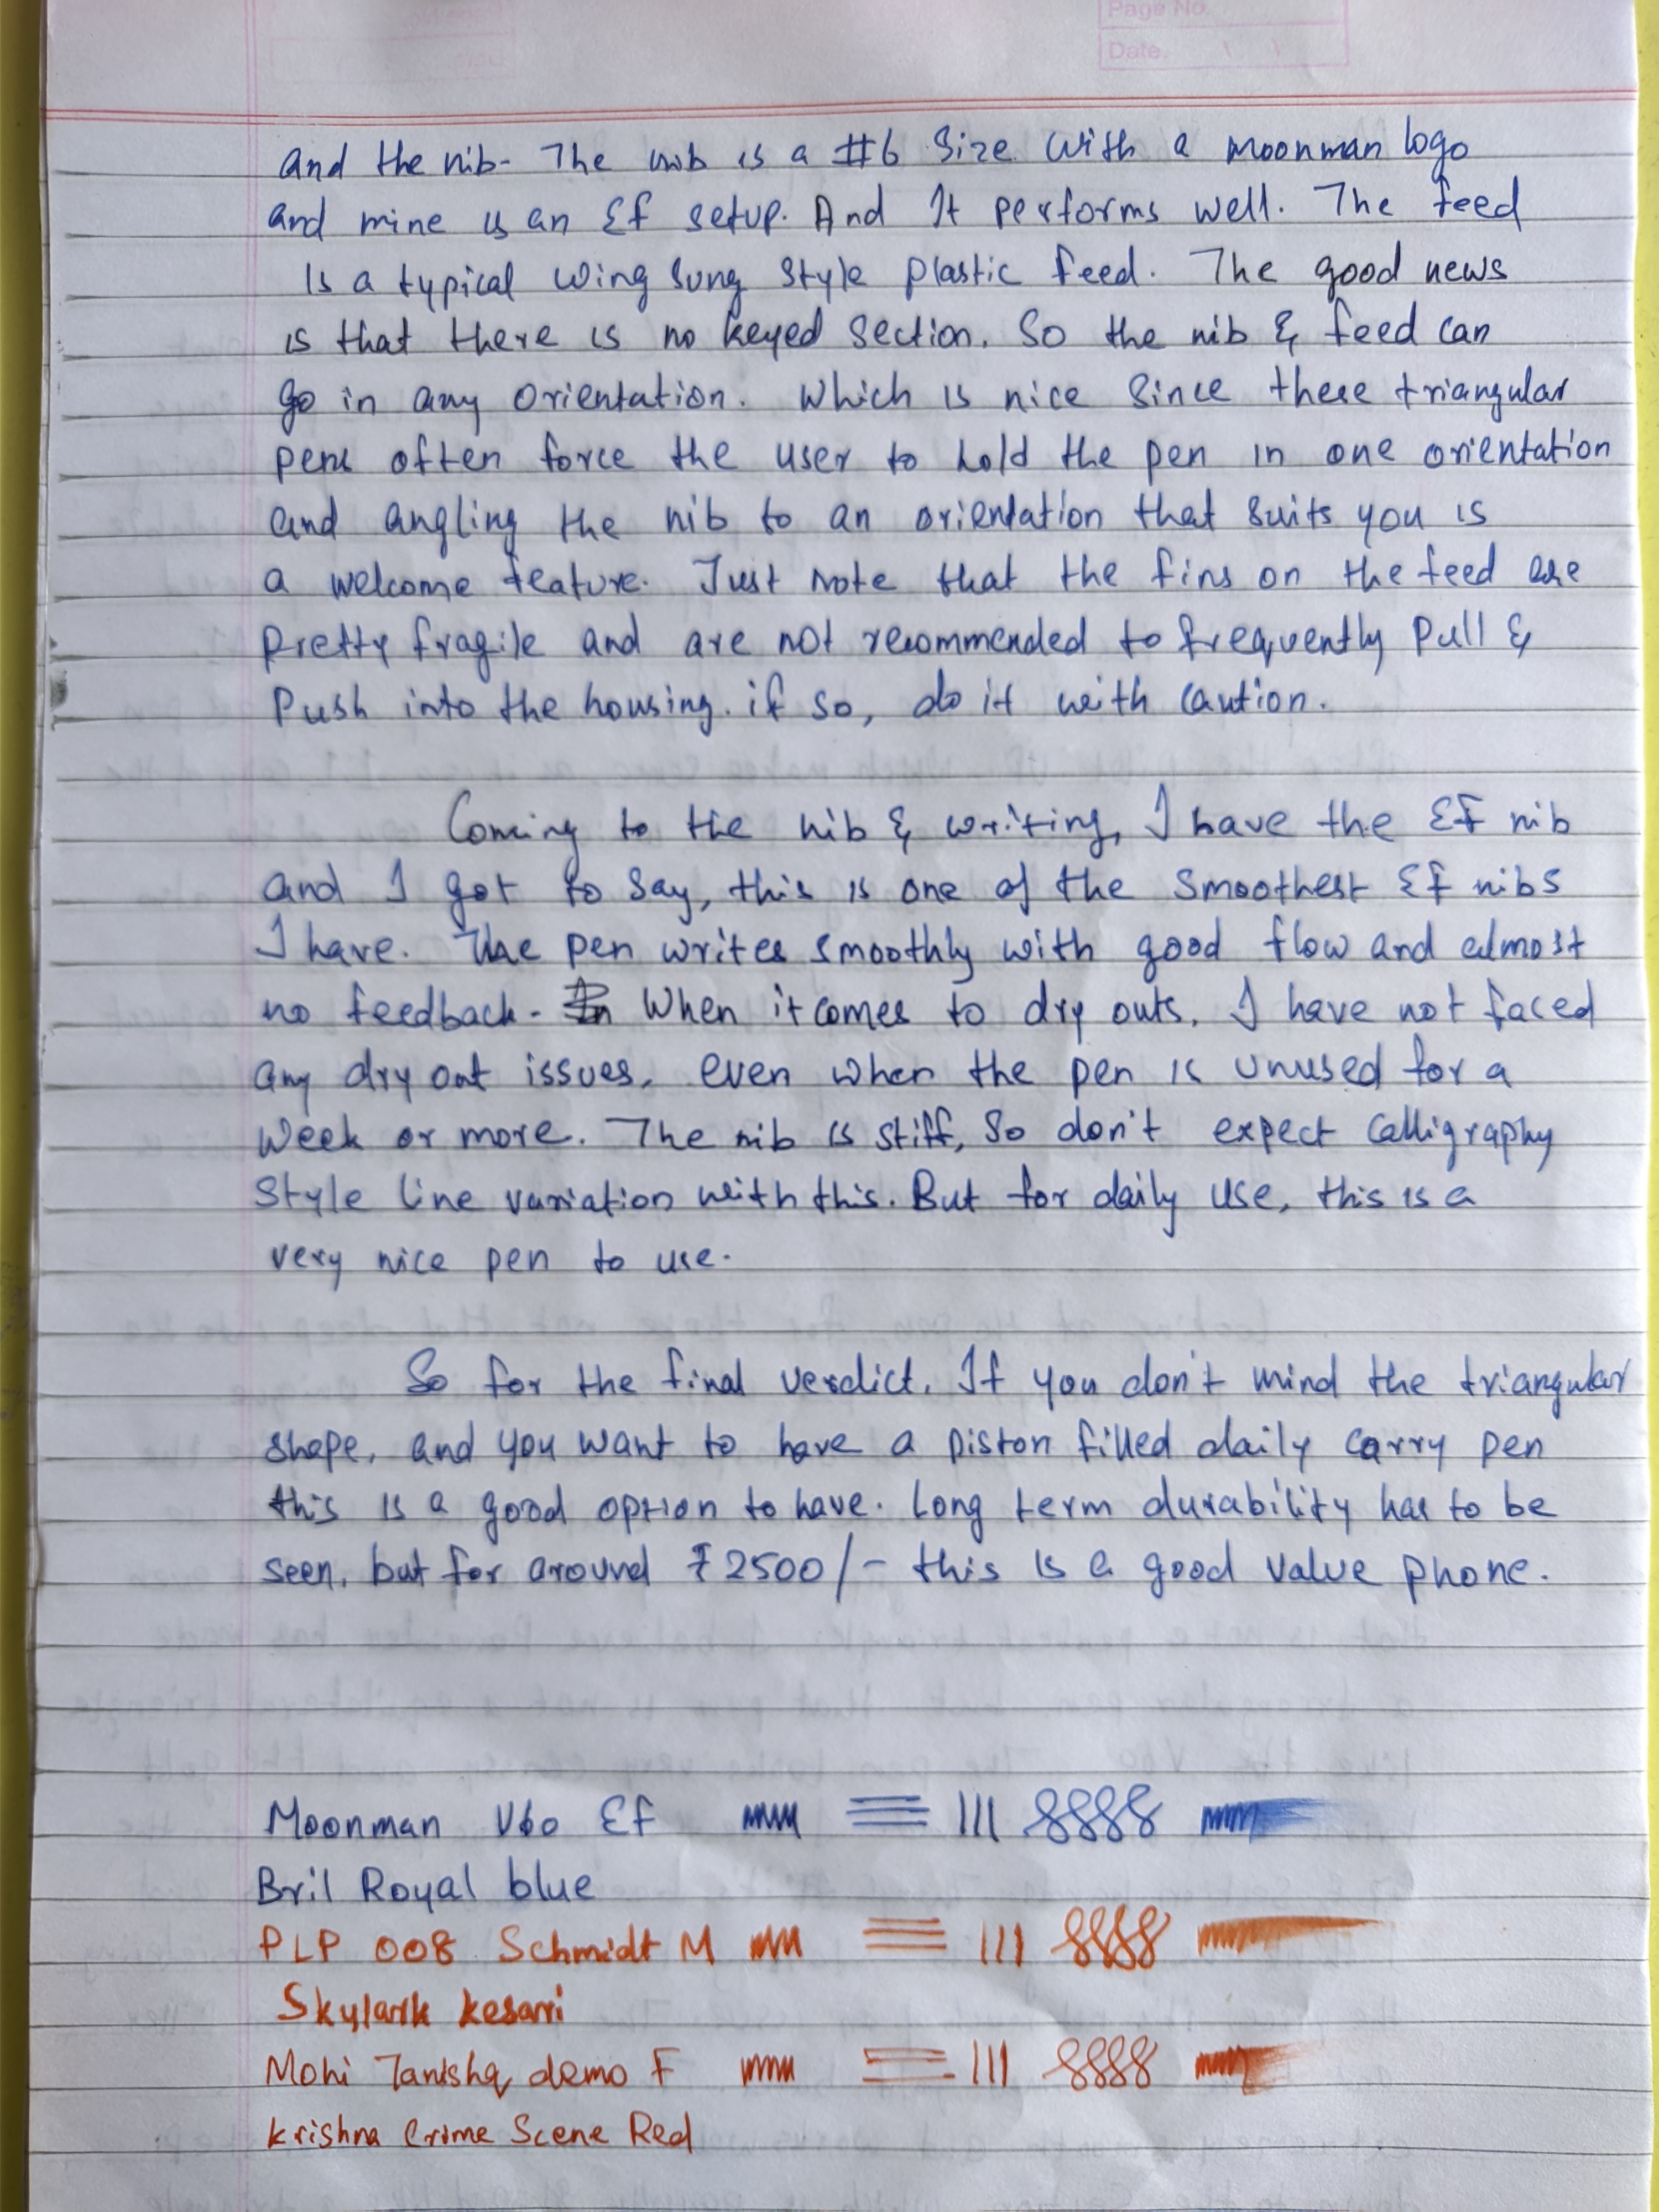 Page No.
Date.
and the nib- The nib is a #6 size with a moonman logo
and mine is an Ef setup. And It performs well. The feed
Is a typical wing sung style plastic feed. The good news
is that there is no keyed section. So the nib & feed can
go in any orientation. Which is nice since these triangular
pens often force the user to hold the pen in one orientation
and angling the nib to an orientation that suits you is
a welcome feature. Just note that the fins on the feed are
pretty fragile and are not recommended to frequently pull &
push into the housing. if so, do it with caution.
Coming to the nib & writing, I have the EF nib
and I got to say, this is one of the smoothest Ef nibs
I have. The pen writes smoothly with good flow and almost
no feedback. In When it comes to dry outs, I have not faced
any dry out issues, even when the pen is unused for a
week or more. The nib is stiff, So don't expect calligraphy
style line variation with this. But for daily use, this is a
very nice pen to use.
So for the final verdict. If you don't mind the triangular
shape, and you want to have a piston filled daily carry pen
this is a good option to have. Long term durability has to be
seen, but for around ₹2500/- this is a good value phone.
Moonman V60 Ef
Bril Royal blue
PLP 008 Schmidt M
Skylark Kesari
Mohi Tanishq demo F
Krishna Crime Scene Red